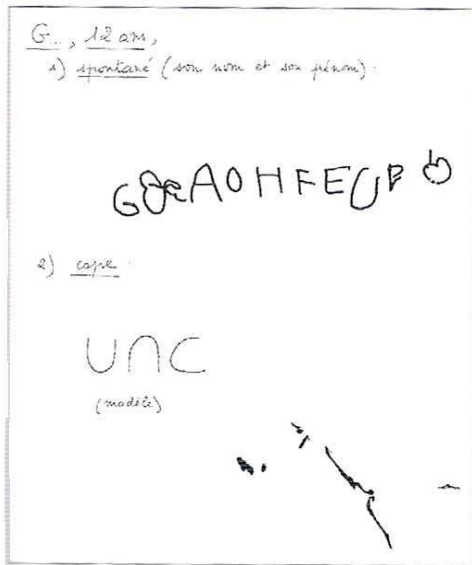 G.., 12 ans,
1) spontané (son nom et son prénom).
AOHFE
2) copie.
U∩C
(modèle)